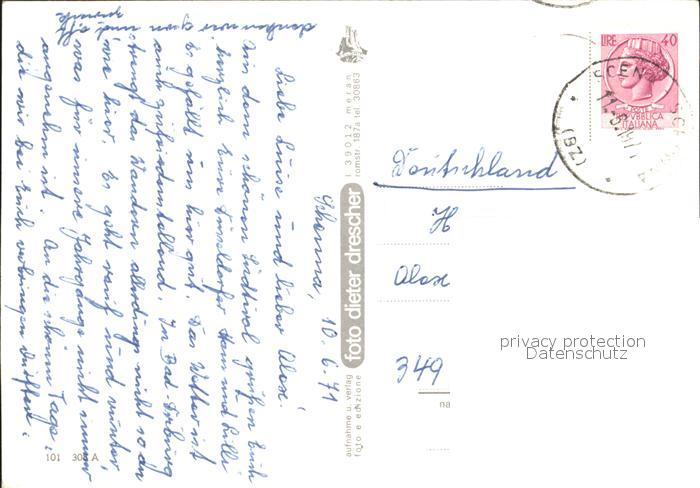 Schenna, 10.6.71
Liebe Luise und lieber Alex!
Aus dem schönen Südtirol grüßen Euch
herzlich Eure Düsseldorfer Hans und Lilli
Es gefällt uns hier gut. Das Wetter ist
auch zufriedenstellend. In Bad-Driburg
strengt das Wandern allerdings nicht so an
wie hier. Es geht rauf und runter,
was für unsere Jahrgänge nicht immer
angenehm ist. An die schönen Tage,
die wir bei Euch verbringen durften,
denken wir gern und oft
zurück
foto dieter drescher
I 39012 meran
romstr. 187a tel. 30863
aufnahme u. verlag
foto e edizione
101 308 A
LIRE 40
POSTE
REPUBBLICA
ITALIANA
SCENA
(BZ)
Deutschland
H
Alex
349
na
privacy protection
Datenschutz